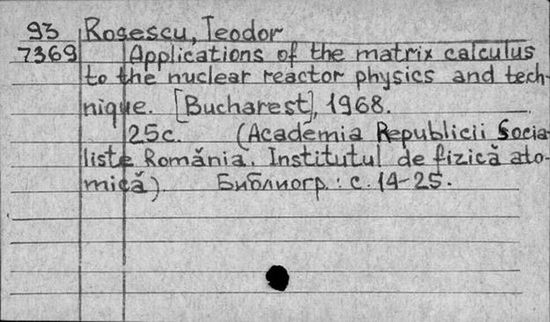 93 Rosescu, Teodor
7369 Applications of the matrix calculus
to the nuclear reactor physics and tech-
nique. [Bucharest], 1968.
25с. (Academia Republicii Socia-
liste România. Institutul de fizică ato-
mică). Библиогр.: с. 14-25.